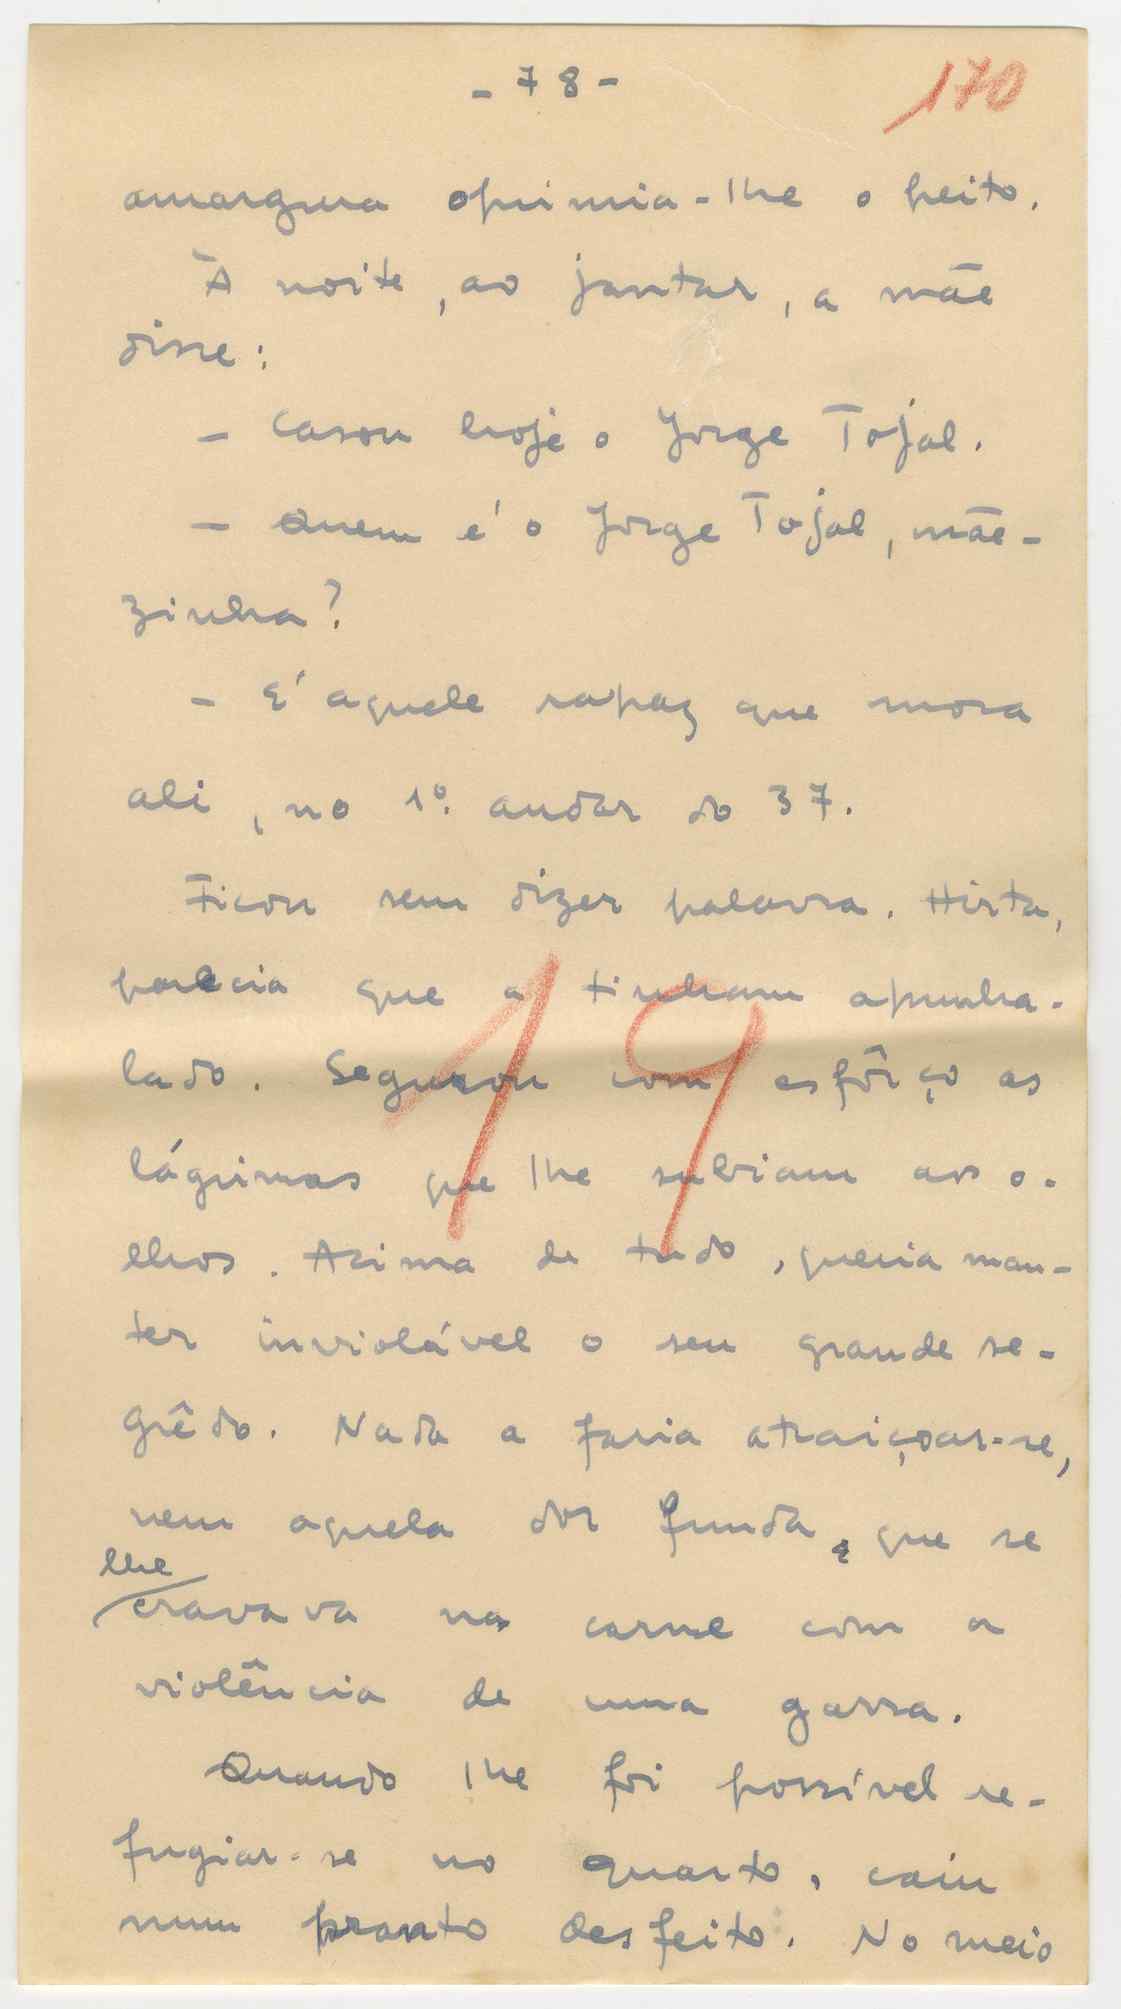 - 78 -
170
amargura oprimia-lhe o peito.
À noite, ao jantar, a mãe
disse:
- Casou hoje o Jorge Tojal.
- Quem é o Jorge Tojal, mãe-
zinha?
- É aquele rapaz que mora
ali, no 1º andar do 37.
Ficou sem dizer palavra. Hirta,
parecia que a tinham apunha-
lado. Segurou com esfôrço as
lágrimas que lhe subiam aos o-
lhos. Acima de tudo, queria man-
ter inviolável o seu grande se-
grêdo. Nada a faria atraiçoar-se,
nem aquela dor funda, que se
lhe
cravava na carne com a
violência de uma garra.
Quando lhe foi possível re-
fugiar-se no quarto, caiu
num pranto desfeito. No meio
19